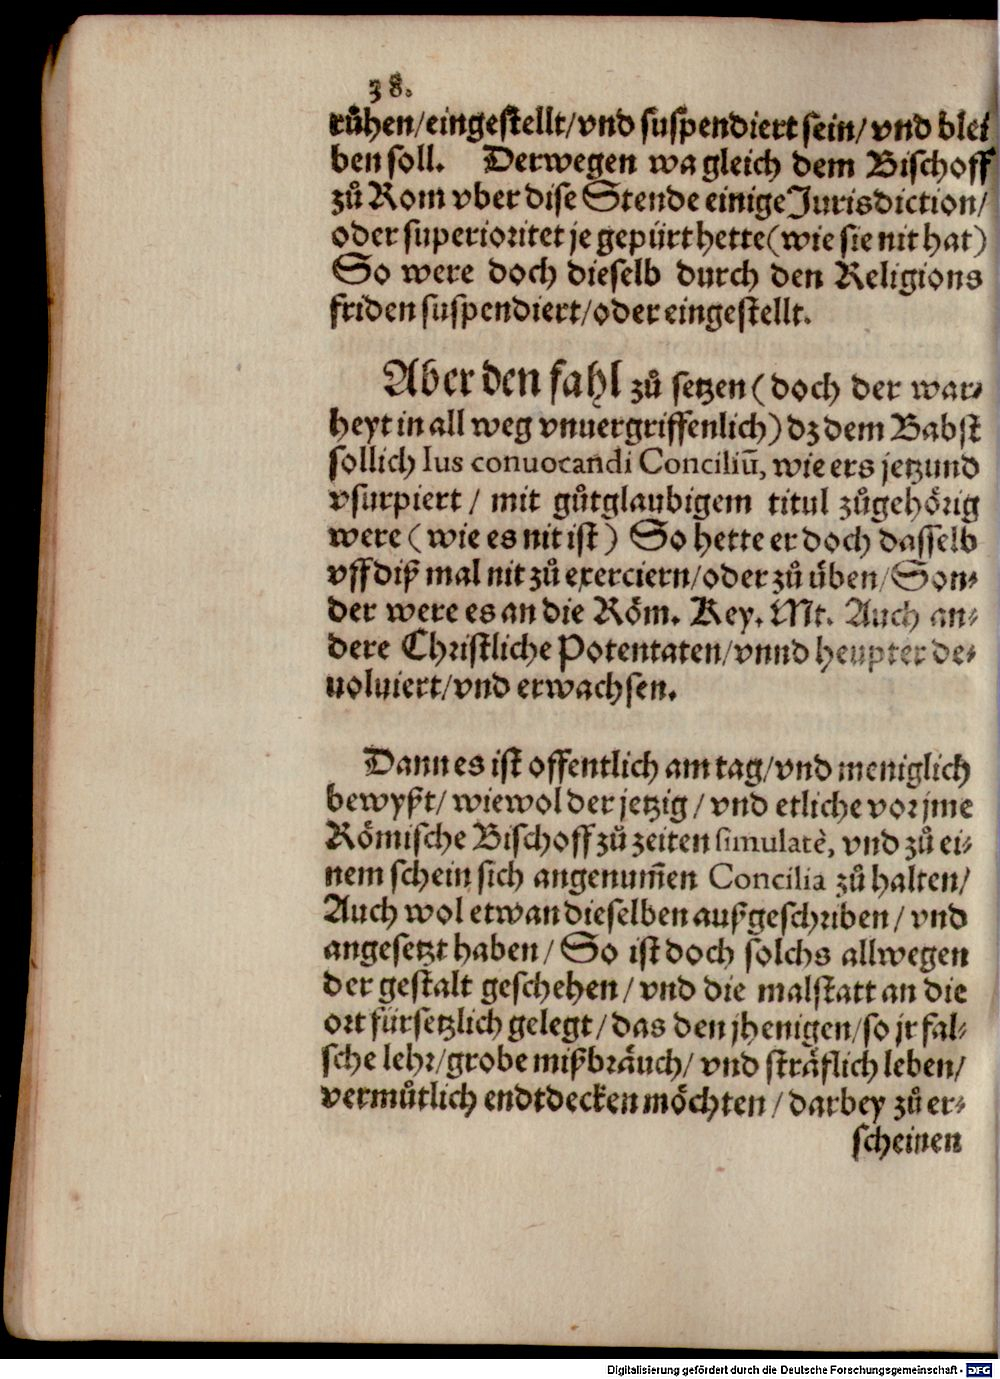 38.
růhen/eingestellt/vnd suspendiert sein/vnd blei
ben soll. Derwegen wa gleich dem Bischoff
zů Rom vber dise Stende einige Jurisdiction/
oder superioritet je gepürt hette(wie sie nit hat)
So were doch dieselb durch den Religions
friden suspendiert/oder eingestellt.
Aber den fahl zů setzen (doch der war-
heyt in all weg vnuergriffenlich) dz dem Babst
sollich Ius conuocandi Conciliū, wie ers jetzund
vsurpiert / mit gůtglaubigem titul zůgehörig
were (wie es nit ist) So hette er doch dasselb
vff diß mal nit zů exerciern/oder zů üben/Son-
der were es an die Röm. Key. Mt. Auch an-
dere Christliche Potentaten/vnnd heupter de-
uoluiert/vnd erwachsen.
Dann es ist offentlich am tag/vnd meniglich
bewyßt/ wiewol der jetzig / vnd etliche vor jme
Römische Bischoff zů zeiten simulatè, vnd zů ei-
nem schein sich angenum̄en Concilia zů halten/
Auch wol etwan dieselben außgeschriben / vnd
angesetzt haben/ So ist doch solchs allwegen
der gestalt geschehen / vnd die malstatt an die
ort fürsetzlich gelegt/das den jhenigen/so jr fal-
sche lehr/grobe mißbräuch/ vnd sträflich leben/
vermůtlich endtdecken möchten / darbey zů er-
scheinen
Digitalisierung gefördert durch die Deutsche Forschungsgemeinschaft - DFG